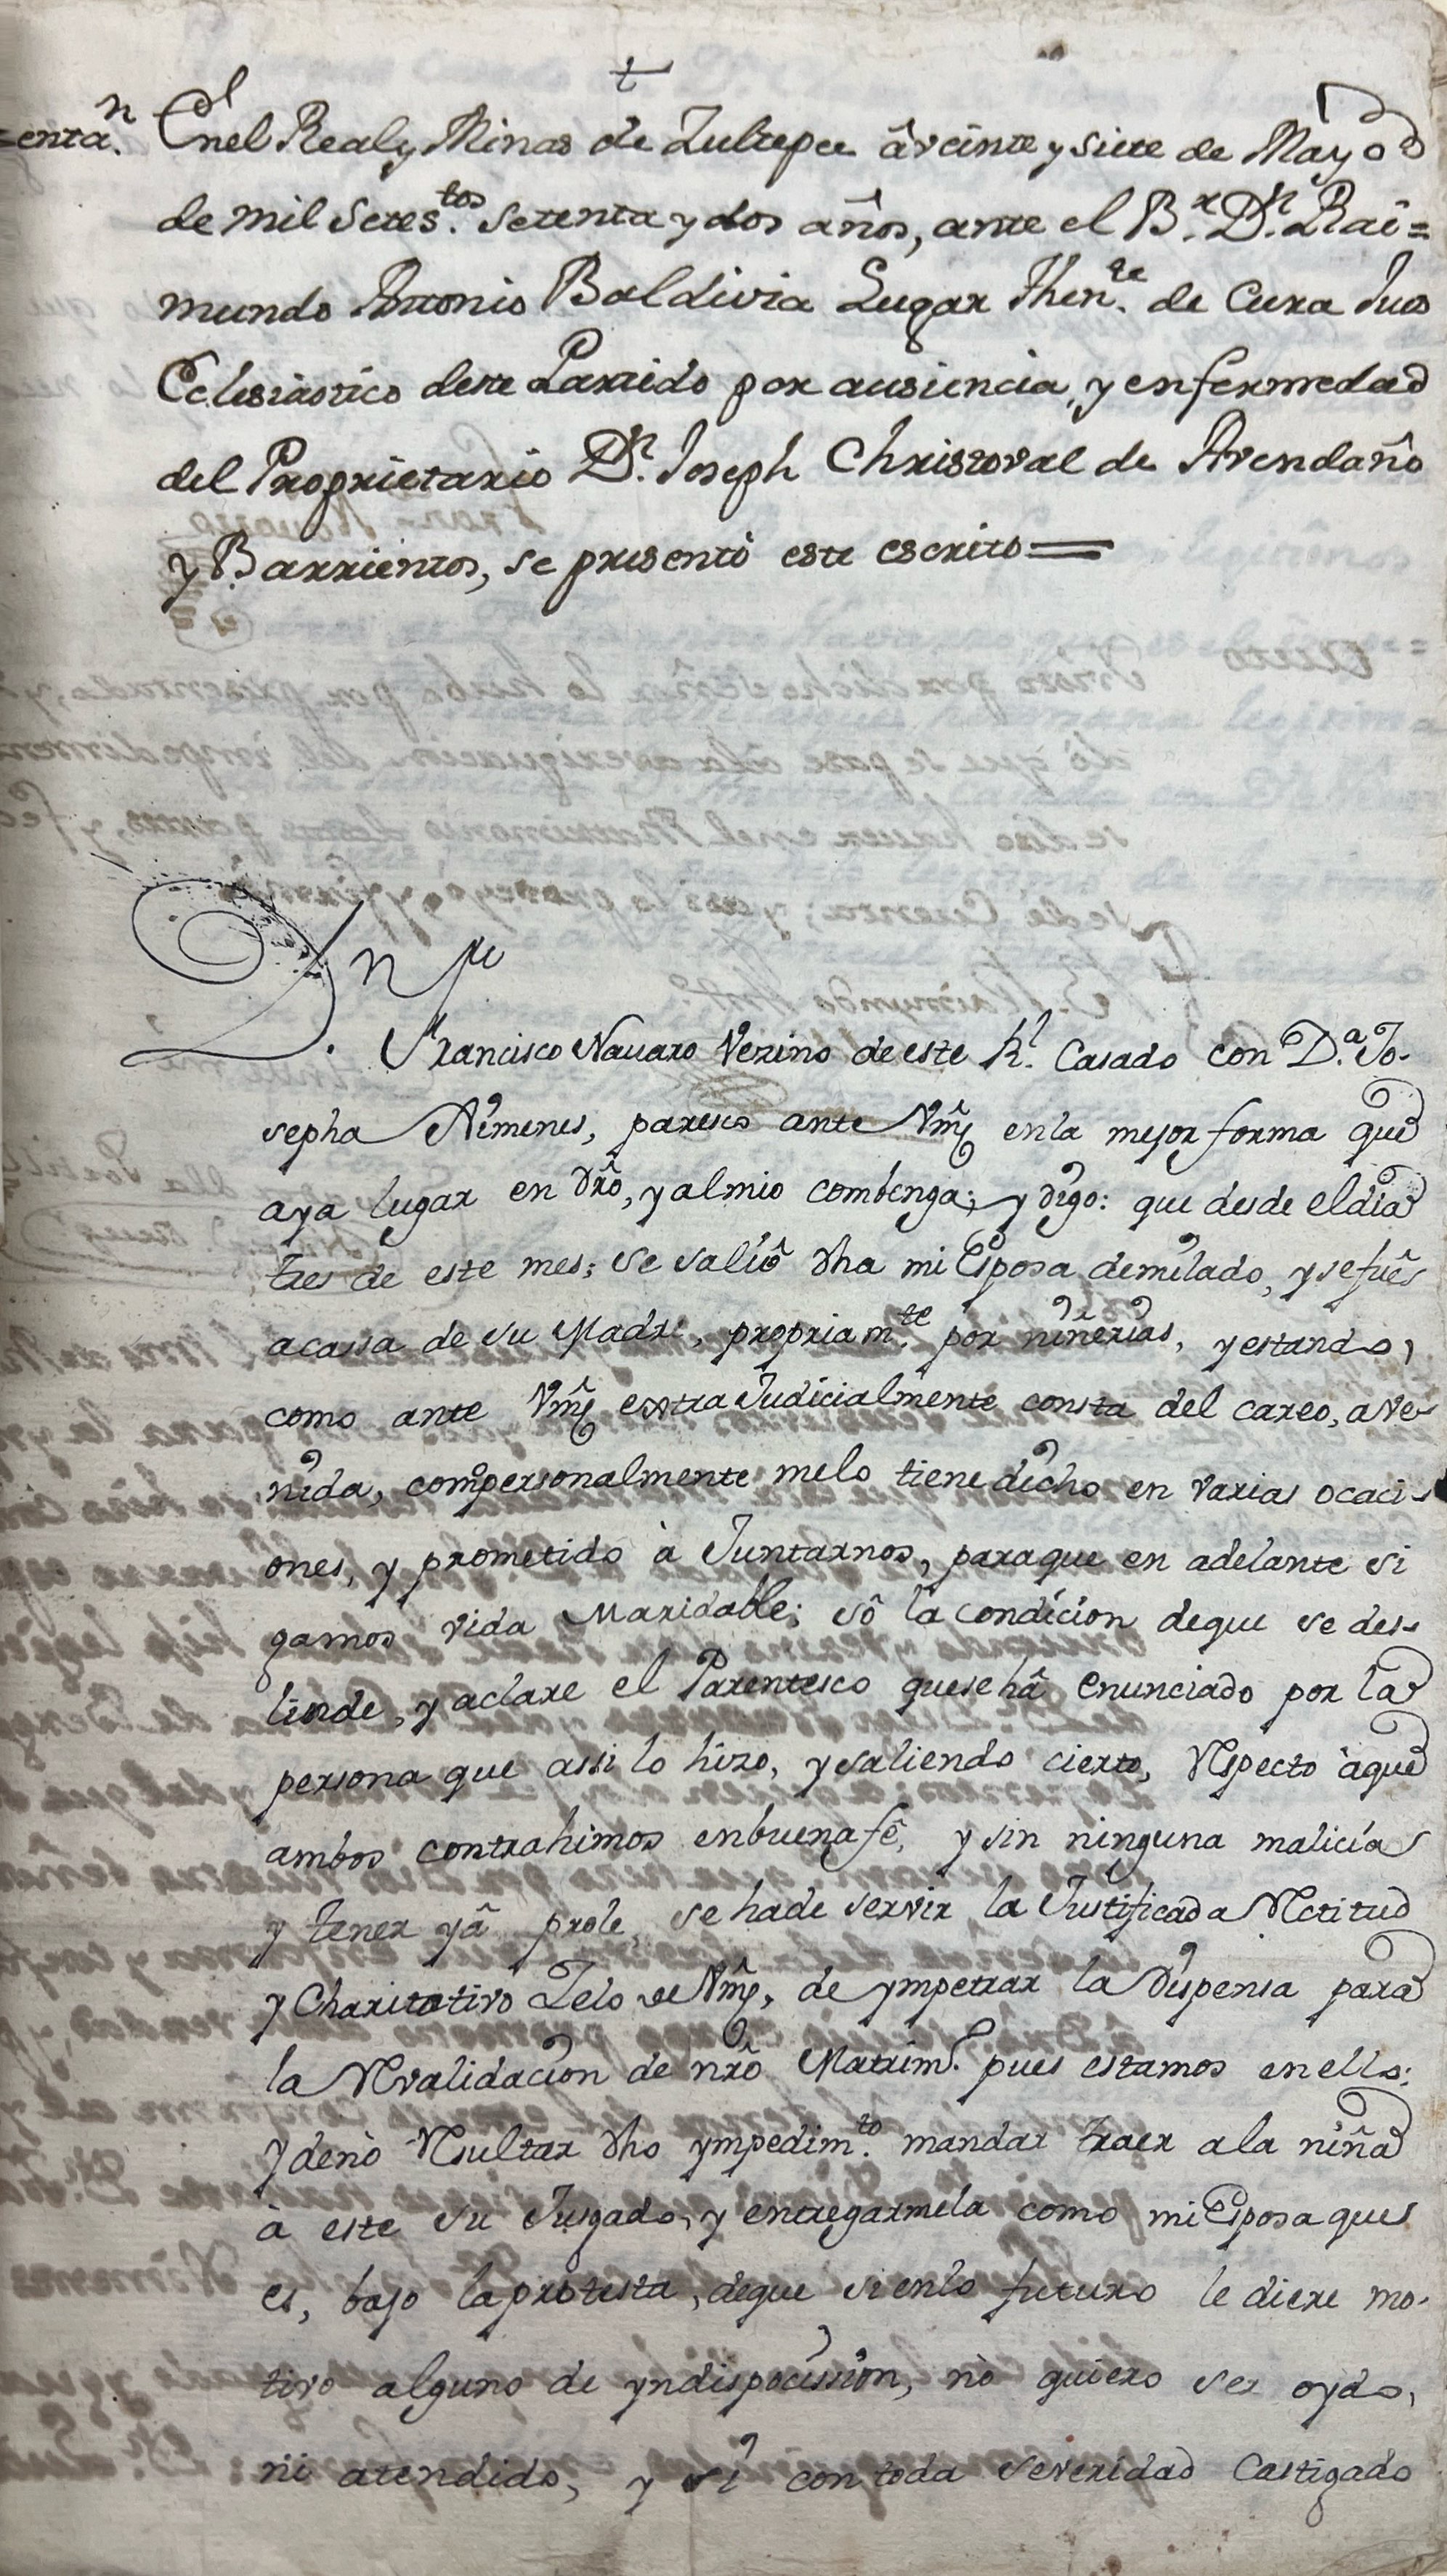 †
entaⁿ. Enel Real y Minas de Zultepec â veinte y siete de Mayo
de mil Seteˢ.ᵗᵒˢ setenta y dos años, ante el B.ʳ D.ⁿ Rai=
mundo Antonio Baldivia Lugar Then.ᵗᵉ de Cura Jues
Eclesiastico deste Partido por ausiencia, y enfermedad
del Proprietario D.ⁿ Joseph Christoval de Avendaño
y Barrientos, se presentó este escrito =
Francisco Navaro Vezino de este R.ˡ Casado con D.ª Jo-
sepha Ximenes, paresco ante Vm̂ḍ en la mejor forma que
aya lugar en dr̂o, y al mio combenga; y digo: que desde el dia
tres de este mes; se salió dha mi Esposa de mi lado, y se fuê
a cassa de su Madre, propriam.ᵗᵉ por niñerias, y estando,
como ante Vm̂ḍ extra Judicialmente consta del careo, ave-
nida, como personalmente me lo tiene dicho en varias ocaci-
ones, y prometido à Juntarnos, para que en adelante si
gamos vida Maridable; sô la condicion de que se des-
linde, y aclare el Parentesco que se hâ enunciado por la
persona que assi lo hizo, y saliendo cierto, Respecto à que
ambos contrahimos en buena fê, y sin ninguna malicia
y tener yâ prole, se ha de servir la Justificada Rectitud
y Charitativo Zelo de Vm̂ḍ, de ympetrar la Dispensa para
la Revalidacion de nr̂o Matrim.º pues estamos en ello;
y de nò Resultar dho ympedim.ᵗᵒ mandar traer a la niña
à este su Jusgado, y entregarmela como mi Esposa que
es, bajo la protesta, de que si en lo futuro le diere mo-
tivo alguno de yndisposission, nò quiero ser oydo,
ni atendido, y sí con toda severidad Castigado